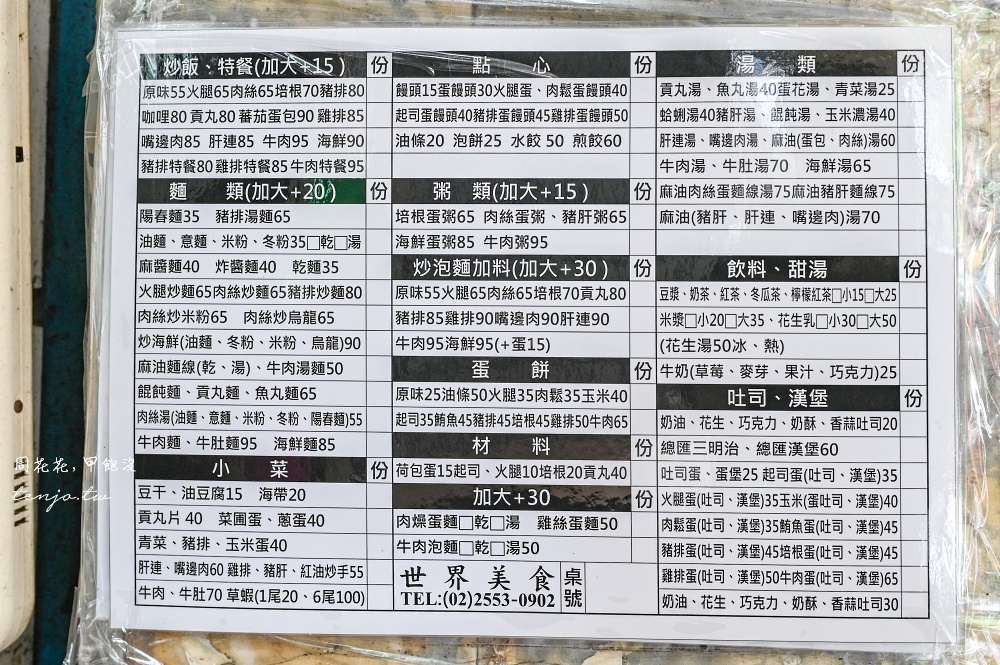 炒飯、特餐(加大+15) 份
原味55火腿65肉絲65培根70豬排80
咖哩80 貢丸80 蕃茄蛋包90 雞排85
嘴邊肉85 肝連85 牛肉95 海鮮90
豬排特餐80 雞排特餐85 牛肉特餐95
麵 類(加大+20) 份
陽春麵35 豬排湯麵65
油麵、意麵、米粉、冬粉35□乾□湯
麻醬麵40 炸醬麵40 乾麵35
火腿炒麵65肉絲炒麵65豬排炒麵80
肉絲炒米粉65 肉絲炒烏龍65
炒海鮮(油麵、冬粉、米粉、烏龍)90
麻油麵線(乾、湯)、牛肉湯麵50
餛飩麵、貢丸麵、魚丸麵65
肉絲湯(油麵、意麵、米粉、冬粉、陽春麵)55
牛肉麵、牛肚麵95 海鮮麵85
小 菜 份
豆干、油豆腐15 海帶20
貢丸片40 菜圃蛋、蔥蛋40
青菜、豬排、玉米蛋40
肝連、嘴邊肉60 雞排、豬肝、紅油炒手55
牛肉、牛肚70 草蝦(1尾20、6尾100)
點 心 份
饅頭15蛋饅頭30火腿蛋、肉鬆蛋饅頭40
起司蛋饅頭40豬排蛋饅頭45雞排蛋饅頭50
油條20 泡餅25 水餃 50 煎餃60
粥 類(加大+15) 份
培根蛋粥65 肉絲蛋粥、豬肝粥65
海鮮蛋粥85 牛肉粥95
炒泡麵加料(加大+30) 份
原味55火腿65肉絲65培根70貢丸80
豬排85雞排90嘴邊肉90肝連90
牛肉95海鮮95(+蛋15)
蛋 餅 份
原味25油條50火腿35肉鬆35玉米40
起司35鮪魚45豬排45培根45雞排50牛肉65
材 料 份
荷包蛋15起司、火腿10培根20貢丸40
加大+30 份
肉燥蛋麵□乾□湯 雞絲蛋麵50
牛肉泡麵□乾□湯50
世界美食 桌號
TEL:(02)2553-0902
湯 類 份
貢丸湯、魚丸湯40蛋花湯、青菜湯25
蛤蜊湯40豬肝湯、餛飩湯、玉米濃湯40
肝連湯、嘴邊肉湯、麻油(蛋包、肉絲)湯60
牛肉湯、牛肚湯70 海鮮湯65
麻油肉絲蛋麵線湯75麻油豬肝麵線75
麻油(豬肝、肝連、嘴邊肉)湯70
飲料、甜湯 份
豆漿、奶茶、紅茶、冬瓜茶、檸檬紅茶□小15□大25
米漿□小20□大35、花生乳□小30□大50
(花生湯50冰、熱)
牛奶(草莓、麥芽、果汁、巧克力)25
吐司、漢堡 份
奶油、花生、巧克力、奶酥、香蒜吐司20
總匯三明治、總匯漢堡60
吐司蛋、蛋堡25 起司蛋(吐司、漢堡)35
火腿蛋(吐司、漢堡)35玉米(蛋吐司、漢堡)40
肉鬆蛋(吐司、漢堡)35鮪魚蛋(吐司、漢堡)45
豬排蛋(吐司、漢堡)45培根蛋(吐司、漢堡)45
雞排蛋(吐司、漢堡)50牛肉蛋(吐司、漢堡)65
奶油、花生、巧克力、奶酥、香蒜吐司30
周花花,甲飽沒
tenjo.tw